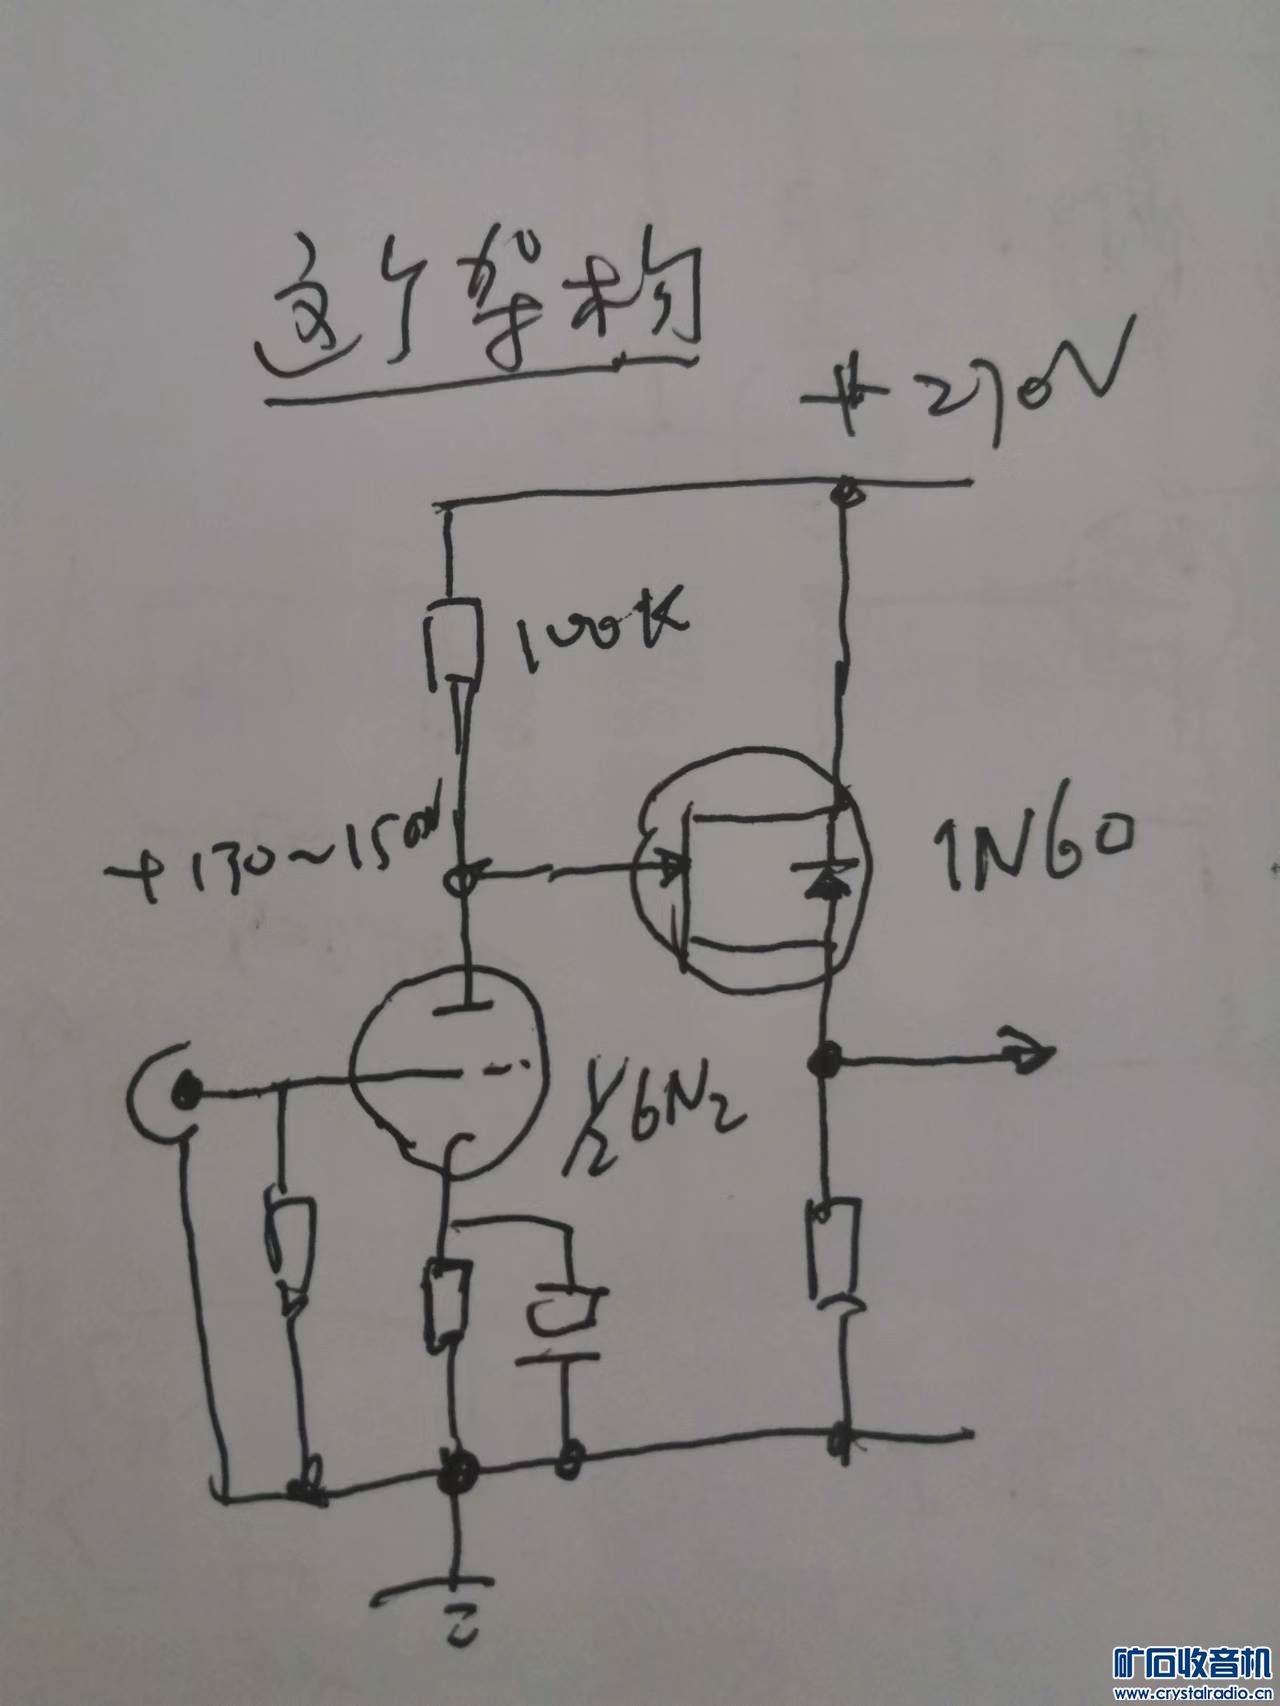 这个架构
+270V
100K
+130~150V
1N60
1/2 6N2
矿石收音机
www.crystalradio.cn